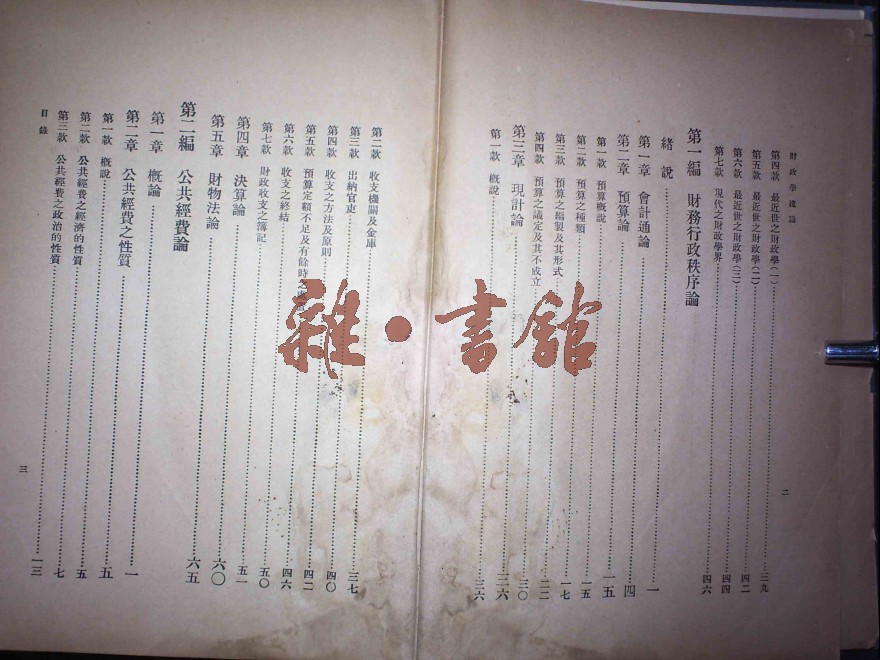 財政學
第四款 最近世之財政學(一)……三九
第五款 最近世之財政學(二)……四二
第六款 最近世之財政學(三)……四四
第七款 現代之財政學界……四六
第一編 財務行政秩序論
緒說……一
第一章 會計通論……四
第二章 預算論……一五
第一款 預算概說……一五
第二款 預算之種類……一七
第三款 預算之編製及其形式……二二
第四款 預算之議定及其不成立……三〇
第三章 現計論……三六
第一款 概說……三六
二
第二款 收支機關及金庫……三七
第三款 出納官吏……四〇
第四款 收支之方法及原則……四二
第五款 預算定額不足及有餘時……四六
第六款 收支之終結……五〇
第七款 財政收支之簿記……五一
第四章 決算論……六〇
第五章 財物法論……六五
第二編 公共經費論
第一章 概論……一
第二章 公共經費之性質……五
第一款 概說……五
第二款 公共經費之經濟的性質……七
第三款 公共經費之政治的性質……一三
目錄
三
雜·書館